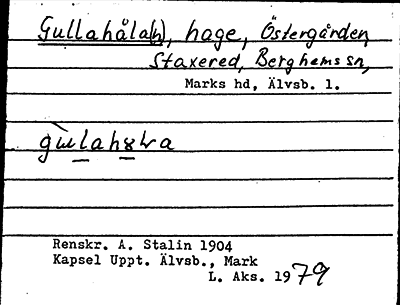 Gullahåla(n), hage, Östergården,
Staxered, Berghems sn,
Marks hd, Älvsb. l.
Renskr. A. Stalin 1904
Kapsel Uppt. Älvsb., Mark
L. Aks. 1979